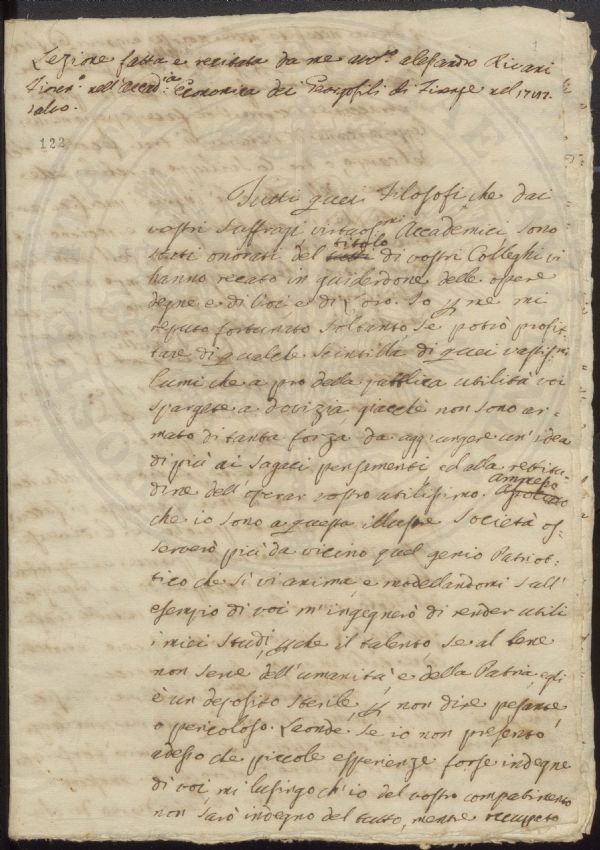 Lezione fatta e recitata da me Avv.º Alesandro Rivani
Fioren.º nell'Accad.ia Economica dei Georgofili di Firenze nel
122
Tutti quei Filosofi che dai
vostri suffragi virtuosmi Accademici sono
stati onorati del titolo di vostri Colleghi vi
hanno recato in guiderdone delle opere
degne e di Voi e di Loro. Io p me mi
reputo fortunato soltanto se potrò profit-
tare di qualche scintilla di quei vastissmi
lumi che a pro della pubblica utilità voi
spargete a dovizia, giacchè non sono ar-
mato di tanta forza da aggiungere un'idea
di più ai sagaci pensamenti ed alla rettitu-
dine dell'operar vostro utilissimo. ammesso
che io sono a questa illustre Società os-
serverò più da vicino quel genio Patriot-
tico che sì vi anima, e modellandomi sull'
esempio di voi m'ingegnerò di render utili
i miei studj, pche il talento se al bene
non serve dell'umanità, e della Patria, egli
è un deposito sterile, p non dire pesante,
o pericoloso. Laonde se io non presento
adesso che piccole esperienze forse indegne
di voi, mi lusingo ch'io del vostro compatimento
non sarò indegno del tutto, mentre occupato